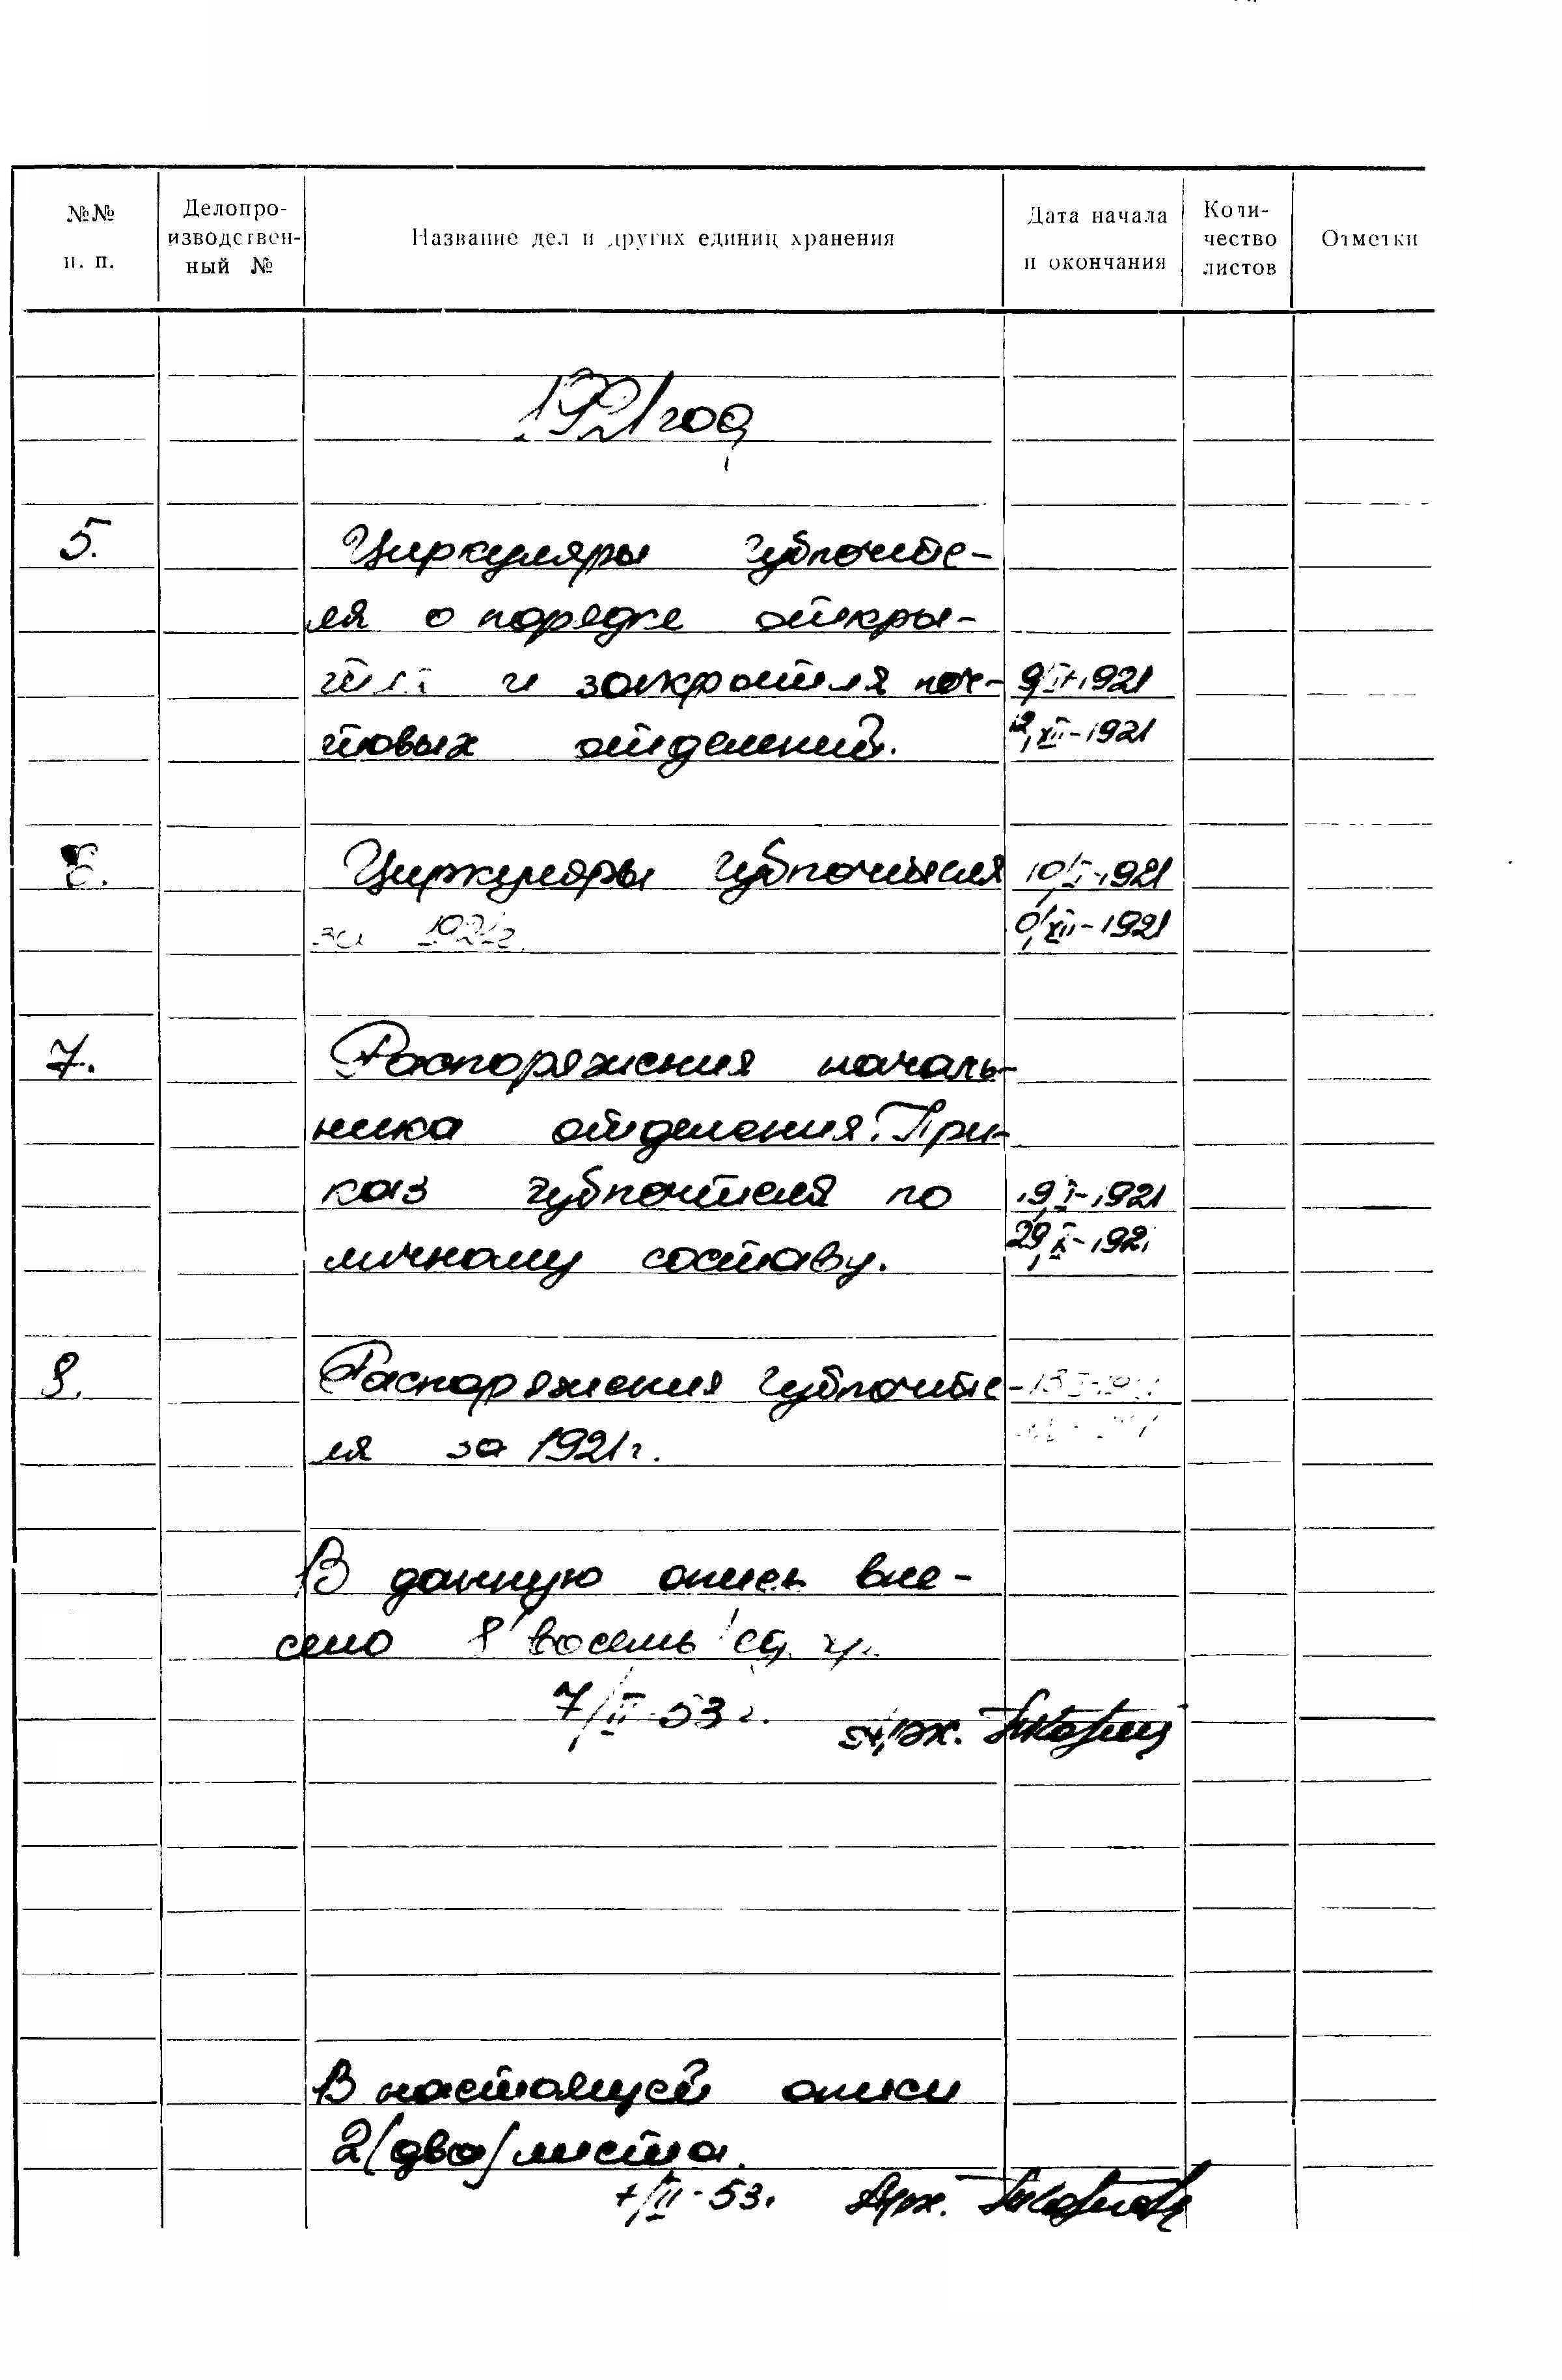 №№ п. п.
Делопроизводственный №
Название дел и других единиц хранения
Дата начала и окончания
Количество листов
Отметки
1921 год
5.
Циркуляры Губпочте-
ля о порядке откры-
тия и закрытия поч-
товых отделений.
9/II-1921
12/XII-1921
6.
Циркуляры Губпочтеля
за 1921г.
10/I-1921
XII-1921
7.
Распоряжения началь-
ника отделения. При-
каз губпочтеля по
личному составу.
19/I-1921
29/X-1921
8.
Распоряжения Губпочте-
ля за 1921г.
В данную опись вне-
сено 8 /восемь/ ед. хр.
7/II-53г. Арх.
В настоящей описи
2/два/ листа.
7/II-53. Арх.